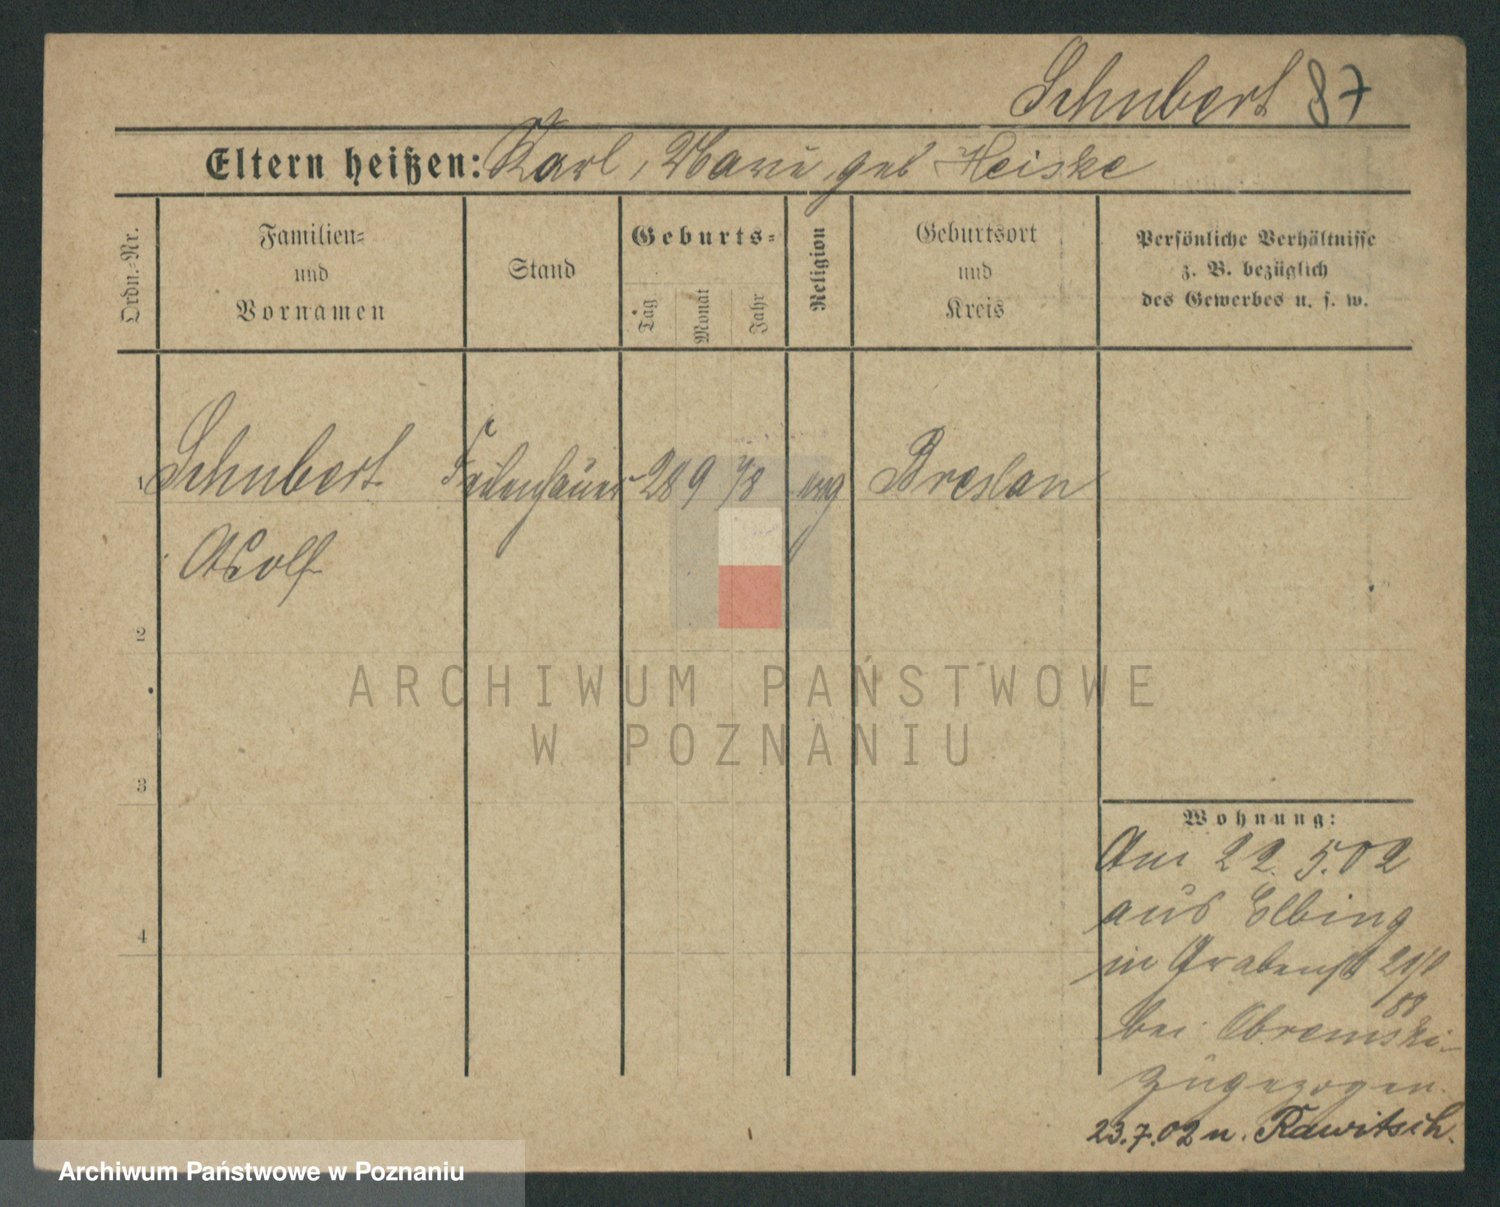 Schubert 87
Eltern heißen: Karl, Marie geb Heiske
Ordn.-Nr.
Familien-
und
Vornamen
Stand
Geburts-
Tag
Monat
Jahr
Religion
Geburtsort
und
Kreis
Persönliche Verhältnisse
z. B. bezüglich
des Gewerbes u. s. w.
1 Schubert Feilenhauer 28 9 78 evg Breslau
Adolf
2
3
4
ARCHIWUM PAŃSTWOWE
W POZNANIU
Wohnung:
Am 22.5.02
aus Elbing
in Grabenst
bei Obremski
zugezogen.
23.7.02 n. Rawitsch.
Archiwum Państwowe w Poznaniu